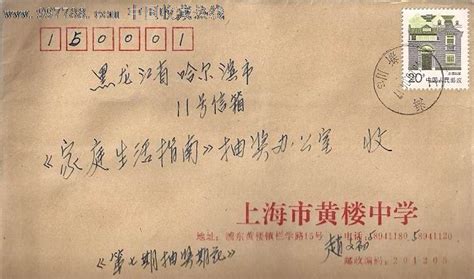 www.997788.com 中国收藏热线
150001
黑龙江省哈尔滨市
11号信箱
《家庭生活指南》抽奖办公室 收
20分 中国人民邮政
上海市黄楼中学
地址：浦东黄楼镇栏学路15号 电话：58941180、58941120
邮政编码：201205